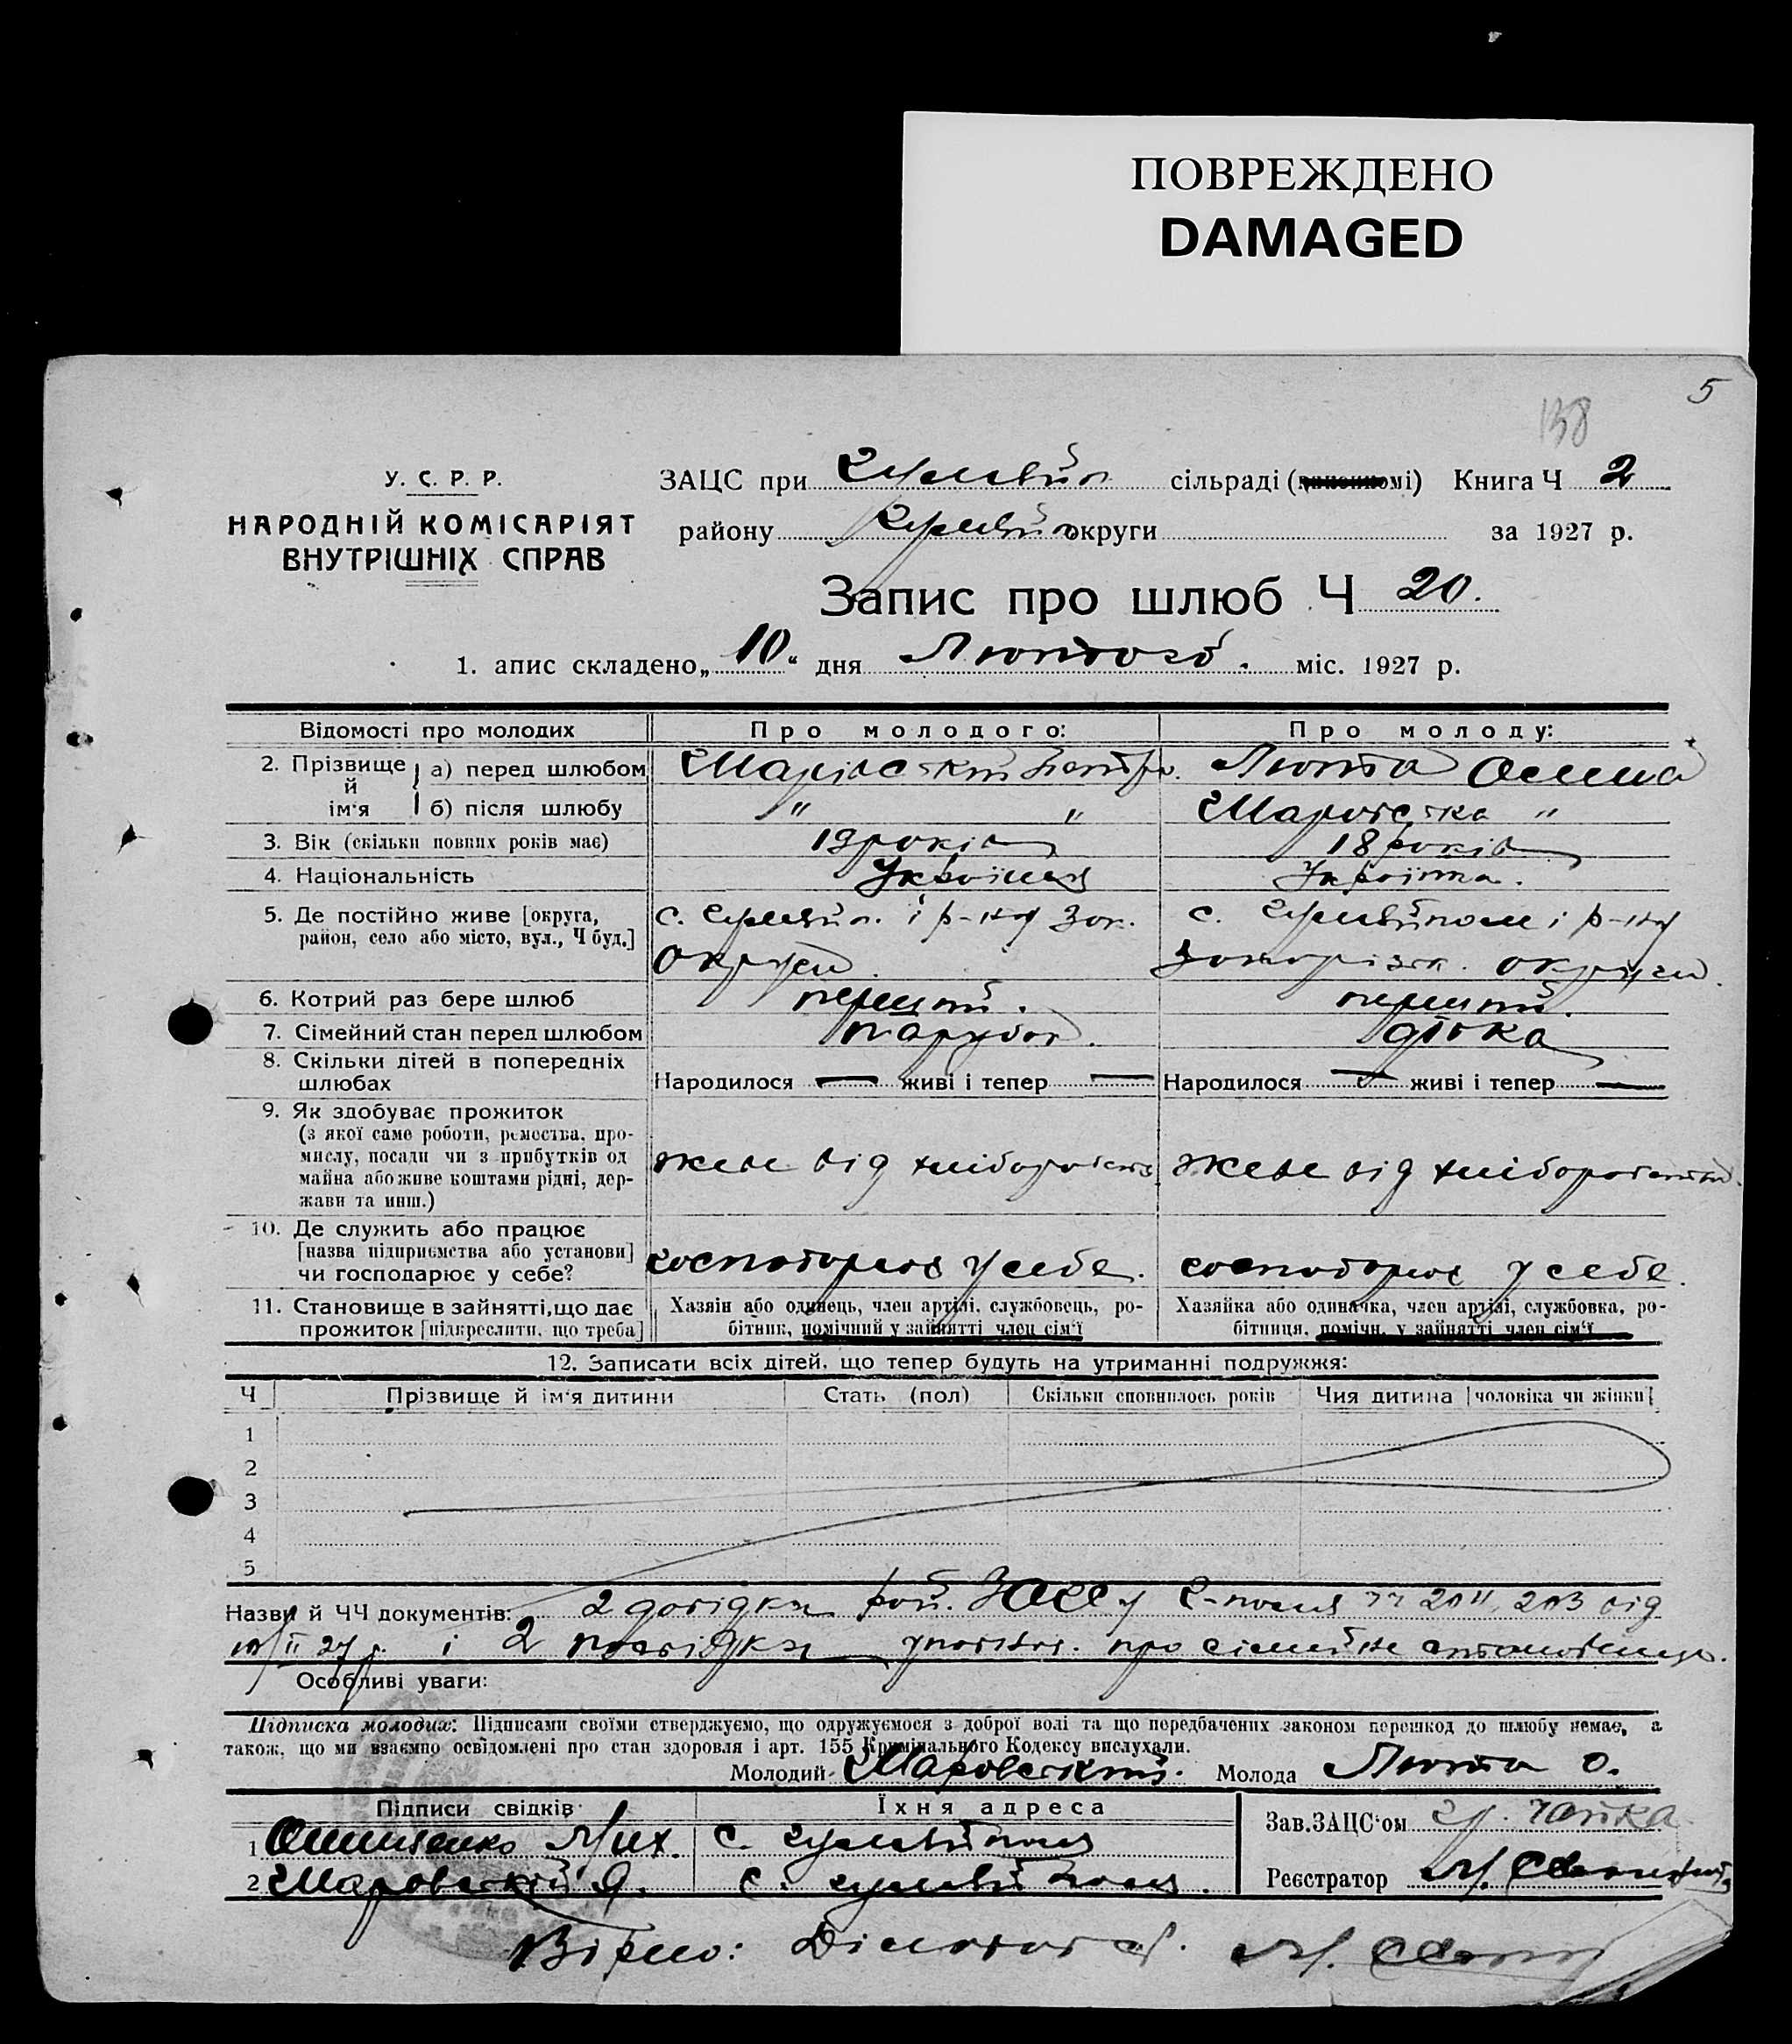 ПОВРЕЖДЕНО
DAMAGED
5
138
У. С. Р. Р.
НАРОДНІЙ КОМІСАРІЯТ
ВНУТРІШНІХ СПРАВ
ЗАЦС при Гуляйп сільраді ( омі) Книга Ч 2
району Гуляйп округи за 1927 р.
Запис про шлюб Ч 20.
1. апис складено „ 10 “ дня Лютого. міс. 1927 р.
Відомості про молодих Про молодого: Про молоду:
2. Прізвище й ім'я а) перед шлюбом Шаровський Петро. Люта
б) після шлюбу " " Шаровська "
3. Вік (скільки повних років має) 19 років 18 років
4. Національність Українець Українка.
5. Де постійно живе [округа, район, село або місто, вул., Ч буд.] с. Гуляйп. і р-ну Зап. округи. с. Гуляйполе і р-ну Запорізьк. округи.
6. Котрий раз бере шлюб перший. перший.
7. Сімейний стан перед шлюбом парубок. дівка
8. Скільки дітей в попередніх шлюбах Народилося — живі і тепер — Народилося — живі і тепер —
9. Як здобуває прожиток
(з якої саме роботи, ремества, про-
мислу, посади чи з прибутків од
майна або живе коштами рідні, дер-
жави та инш.) живе від хліборобства живе від хліборобства.
10. Де служить або працює
[назва підприємства або установи]
чи господарює у себе? господарює у себе. господарює у себе.
11. Становище в зайнятті, що дає прожиток [підкреслити, що треба] Хазяїн або одинець, член артілі, службовець, ро-бітник, помічний у зайнятті член сім'ї Хазяйка або одиначка, член артілі, службовка, ро-бітниця, помічн. у зайнятті член сім'ї
12. Записати всіх дітей, що тепер будуть на утриманні подружжя:
Ч Прізвище й ім'я дитини Стать (пол) Скільки сповнилось років Чия дитина [чоловіка чи жінки]
1
2
3
4
5
Назви й ЧЧ документів: 2 довідки рай. ЗАГСу Г-поля від
II 27 р. і 2 про сімейне становище.
Особливі уваги:
Підписка молодих: Підписами своїми стверджуємо, що одружуємося з доброї волі та що передбачених законом перешкод до шлюбу немає, а
також, що ми взаємно освідомлені про стан здоровля і арт. 155 Кримінального Кодексу вислухали.
Молодий Шаровський. Молода Люта О.
Підписи свідків Їхня адреса
1 Онищенко Мих. с. Гуляйполе
2 Шаровський Я. с. Гуляйполе.
Зав. ЗАЦС'ом Чайка
Реєстратор М.
Вірно: Діловод М.